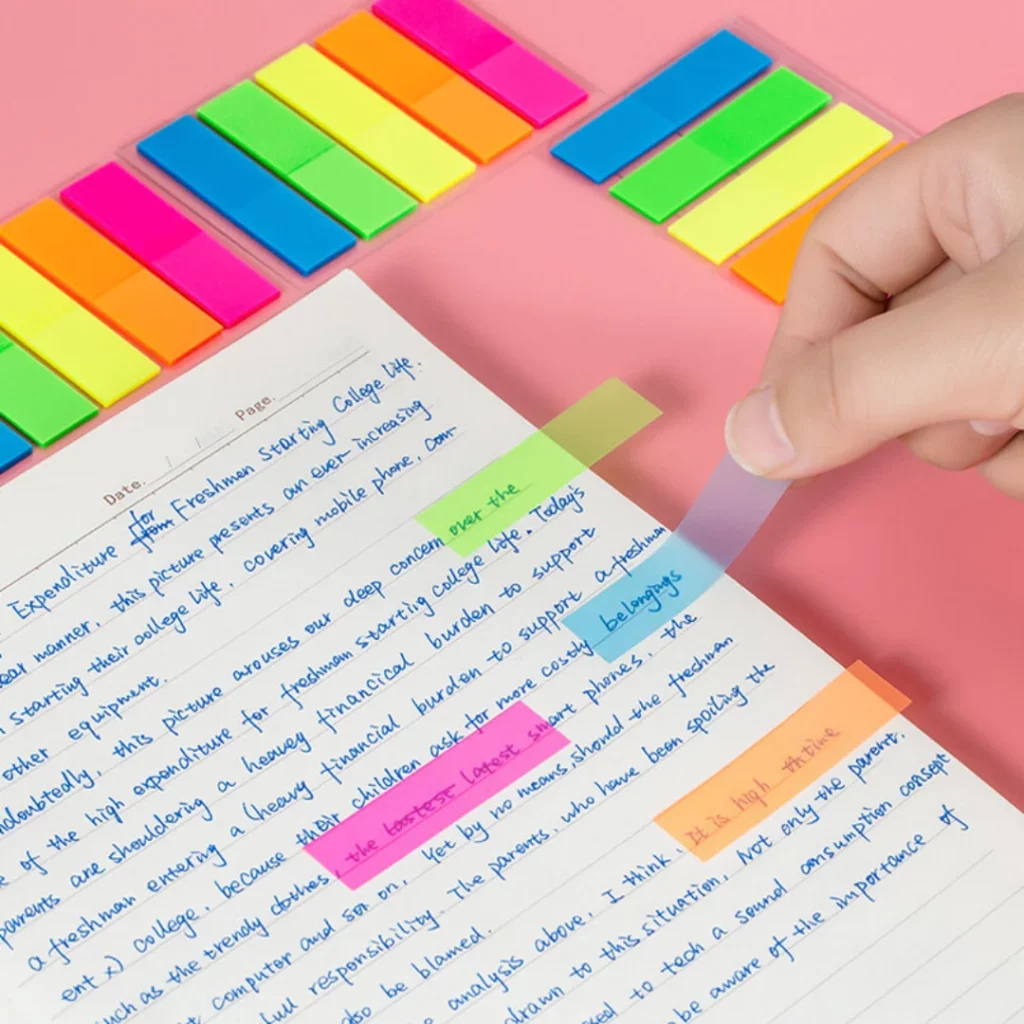 Date. Page.
Expenditure for from Freshmen Starting College Life.
ear manner, this picture presents an ever increasing
starting their college life, covering mobile phone, com-
other equipment.
ndoubtedly, this picture arouses our deep concern over the
e of the high expenditure for freshman starting college life. Today's
parents are shouldering a heavey financical burden to support
a freshman entering a (heavy financial burden to support a freshman
ent x) college, because their children ask for more costly belongings
uch as the trendy clothes, the lastest latest smart phones, the
computer and so on. Yet by no means should the freshman
ull responsibility. The parents, who have been spoiling the
also be blamed.
analysis above, I think, It is high th time
drawn to this situation. Not only the parent.
osed to tech a sound consumption concept
be aware of the importance of